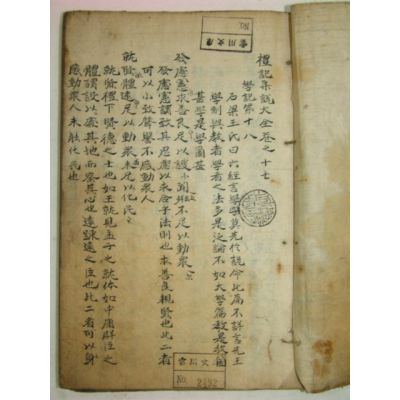 禮記集說大全卷之十七
學記第十八
石梁王氏曰六經言學字莫先於說命此篇不詳言先王
學制與教者學者之法多是泛論不如大學篇教是教箇
甚學是學箇甚
發慮憲求善良足以謏聞不足以動衆
發慮憲謂致其思慮以求合乎法則也求善良親賢也此二者
可以小致聲譽不感動衆人
就賢體遠足以動衆未足以化民
就賢禮下賢德之士也如王就見孟子之就体如中庸群臣之
體謂設以處其地而察其心也遠疎遠之臣也此二者可以身
感動衆人未能化民也
雲川文庫
No.
雲川文
No.